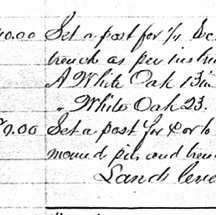 40.00 Set a post for 1/4 Sec
trench as per instru
A White Oak 13 in
" White Oak 23.
80.00 Set a post for Cor to
mound pits and tren
Land leve